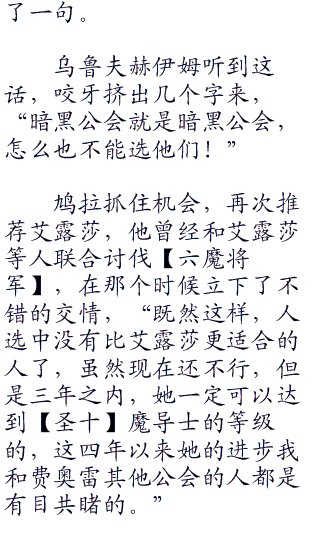 了一句。
乌鲁夫赫伊姆听到这
话，咬牙挤出几个字来，
“暗黑公会就是暗黑公会，
怎么也不能选他们！”
鸠拉抓住机会，再次推
荐艾露莎，他曾经和艾露莎
等人联合讨伐【六魔将
军】，在那个时候立下了不
错的交情，“既然这样，人
选中没有比艾露莎更适合的
人了，虽然现在还不行，但
是三年之内，她一定可以达
到【圣十】魔导士的等级
的，这四年以来她的进步我
和费奥雷其他公会的人都是
有目共睹的。”